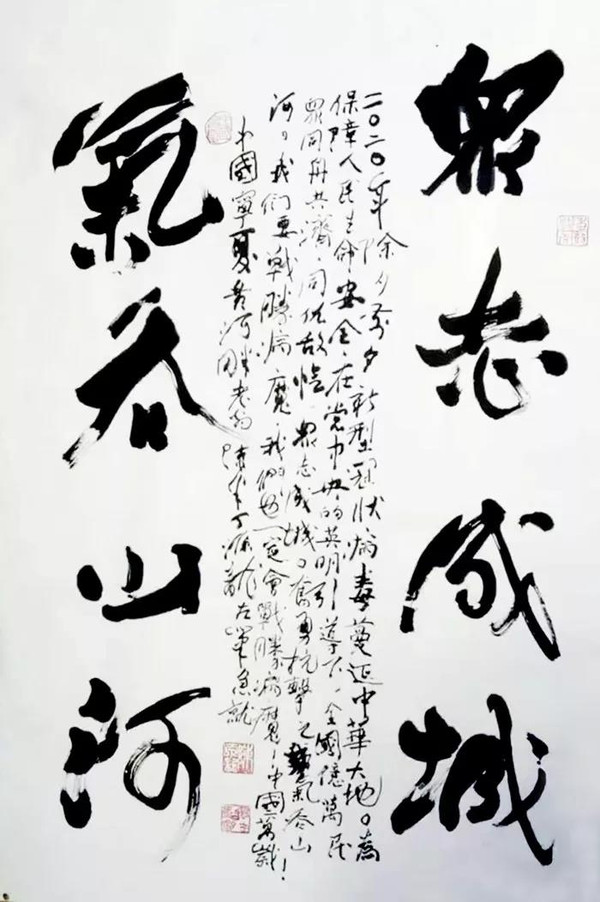 眾志成城
二〇二〇年除夕前夕新型冠狀病毒蔓延中華大地。為
保障人民生命安全,在党中央的英明引導下,全國億萬民
眾同舟共濟,同仇敌愾,眾志成城。奮勇抗擊之氣吞山
河。我们要戰勝病魔,我們也一定會戰勝病魔!中國萬歲!
中國寧夏黃河畔老翁左筆急就
氣吞山河